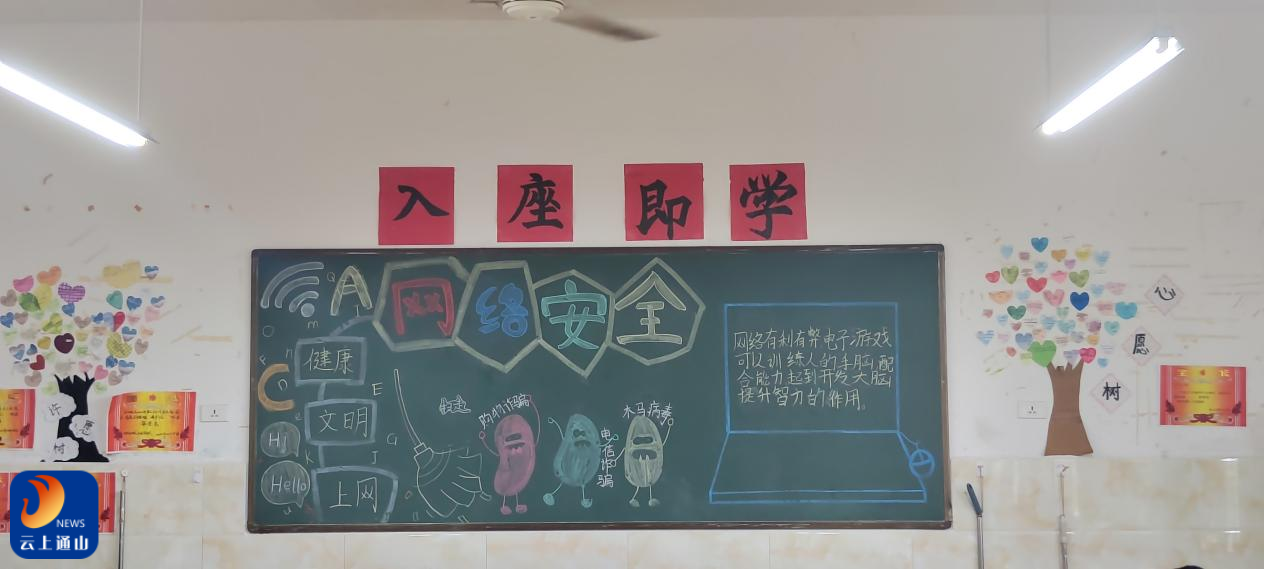 入座即学
网络安全
健康
文明
上网
Hi
Hello
购物诈骗
电信诈骗
木马病毒
网络有利有弊电子游戏
可以训练人的手脑配
合能力起到开发大脑
提升智力的作用。
许
愿
树
心
愿
树
NEWS
云上通山